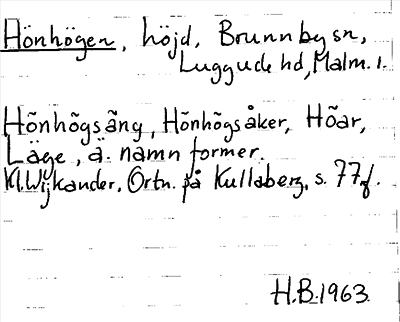 Hönhögen, höjd, Brunnby sn,
Luggude hd, Malm. l.
Hönhögsäng, Hönhögsåker, Höar,
Läge, ä. namnformer.
Kl. Wijkander, Ortn. på Kullaberg, s. 77f.
H.B. 1963